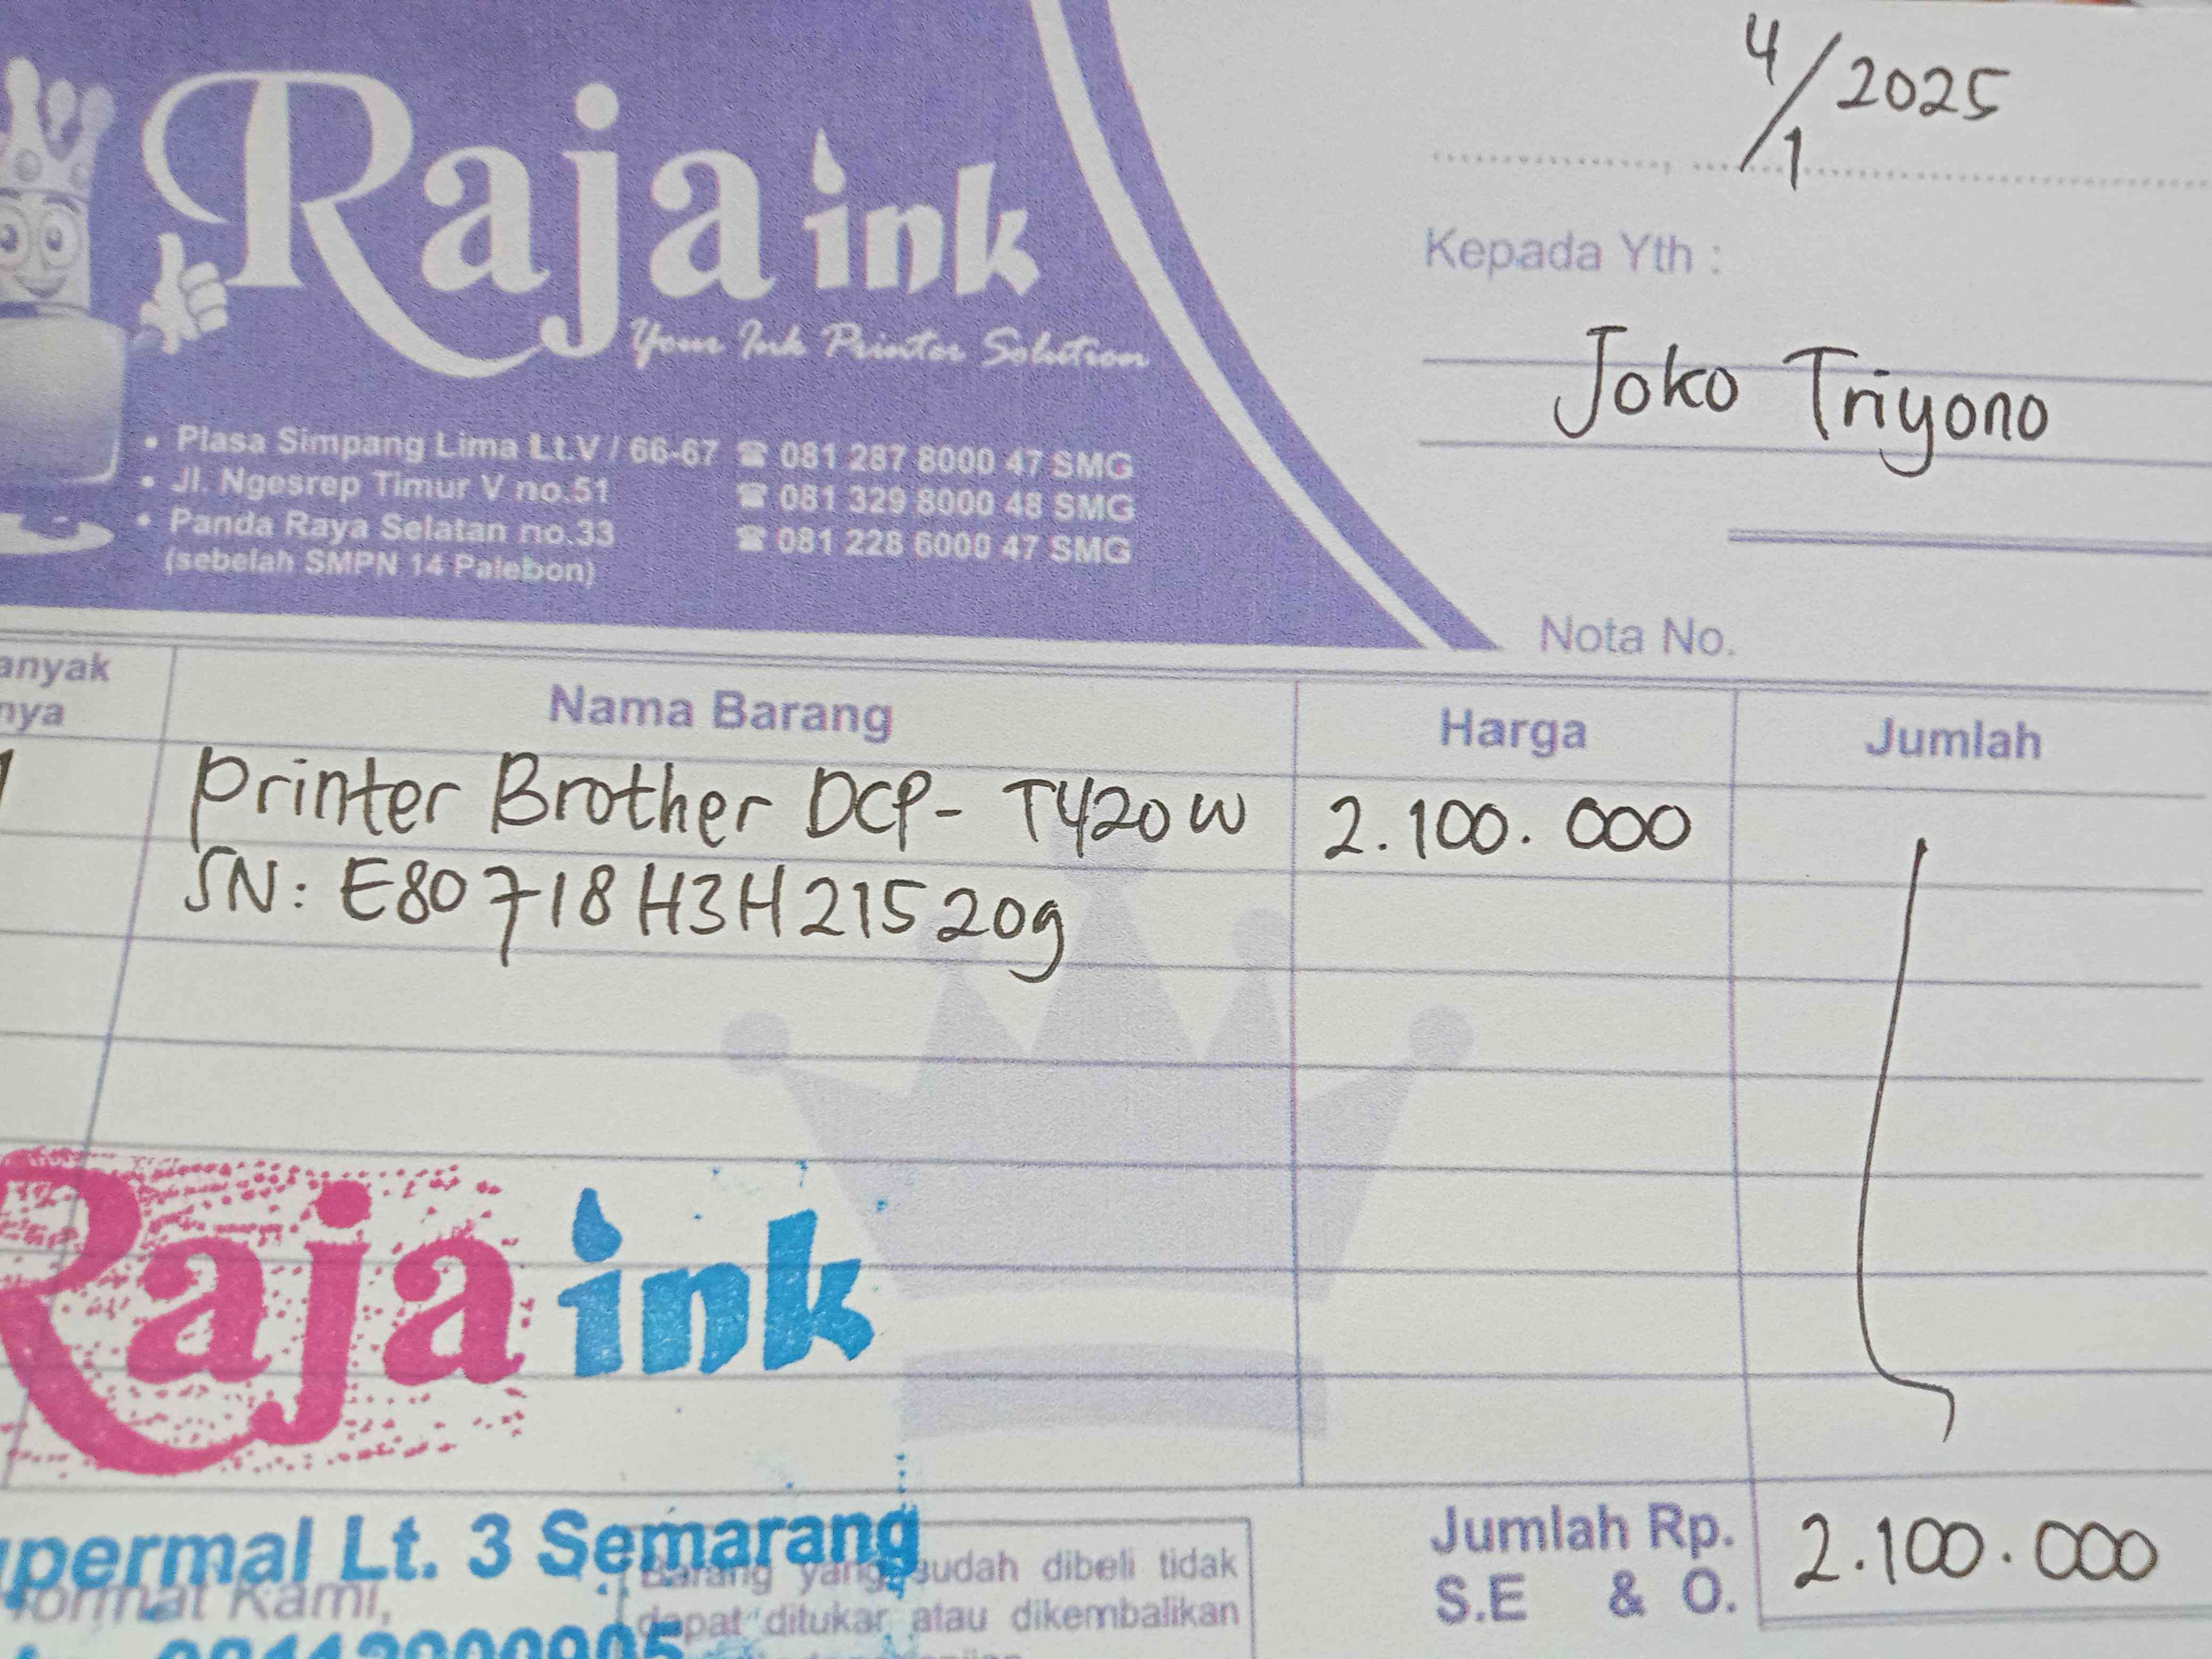 4/1 2025
Raja ink
Your Ink Printer Solution
• Plasa Simpang Lima Lt.V / 66-67 ☎ 081 287 8000 47 SMG
• Jl. Ngesrep Timur V no.51 ☎ 081 329 8000 48 SMG
• Panda Raya Selatan no.33 ☎ 081 228 6000 47 SMG
(sebelah SMPN 14 Palebon)
Kepada Yth :
Joko Triyono
Nota No.
anyak
nya
Nama Barang
Harga
Jumlah
1 Printer Brother DCP- T420W 2.100.000
SN: E80718H3H215209
Raja ink
permal Lt. 3 Semarang
ormat Kami,
08112900905
Barang yang sudah dibeli tidak
dapat ditukar atau dikembalikan
Jumlah Rp. 2.100.000
S.E & O.